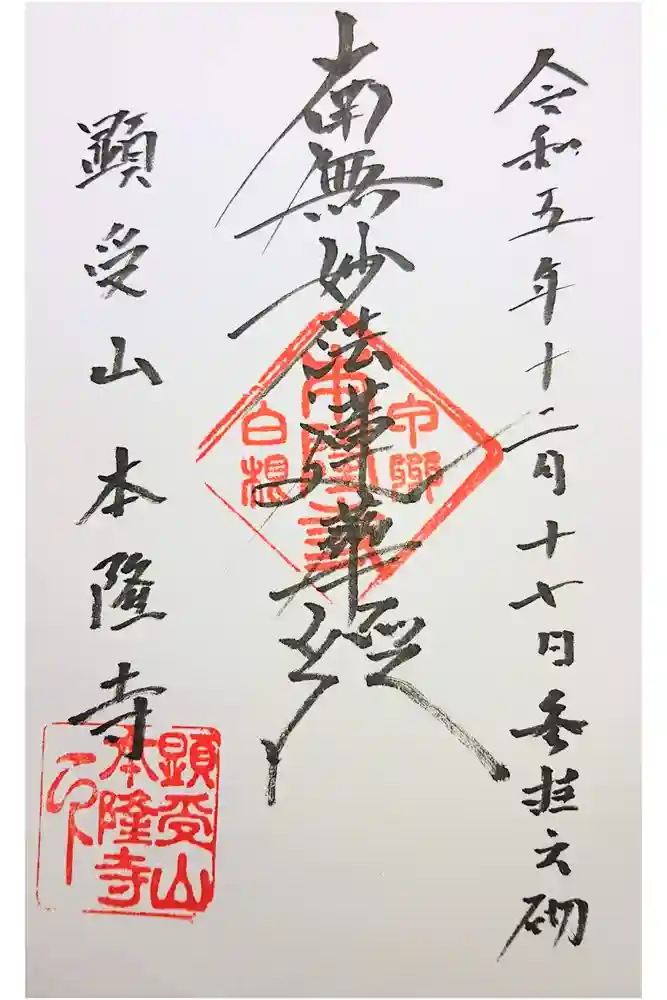 令和五年十二月十七日参拝之砌
南無妙法蓮華経
本隆寺
白根
顕受山 本隆寺
顕受山
本隆寺
印